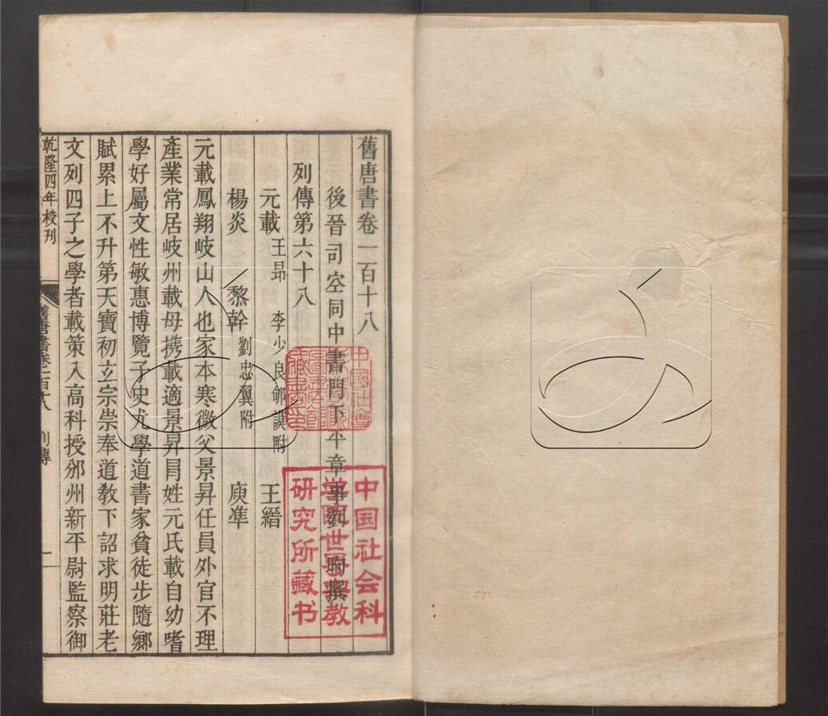 舊唐書卷一百十八
後晉司空同中書門下平章事劉昫撰
列傳第六十八
元載 王昻 李少良 郇謨附 王縉
楊炎 黎幹 劉忠翼附 庾準
元載鳳翔岐山人也家本寒微父景昇任員外官不理
產業常居岐州載母携載適景昇冐姓元氏載自幼嗜
學好屬文性敏惠博覽子史尤學道書家貧徒步隨鄉
賦累上不升第天寶初玄宗崇奉道教下詔求明莊老
文列四子之學者載策入高科授邠州新平尉監察御
乾隆四年校刊
舊唐書卷一百十八 列傳 一
中国社会科
学院世界宗教
研究所藏书
中國社會